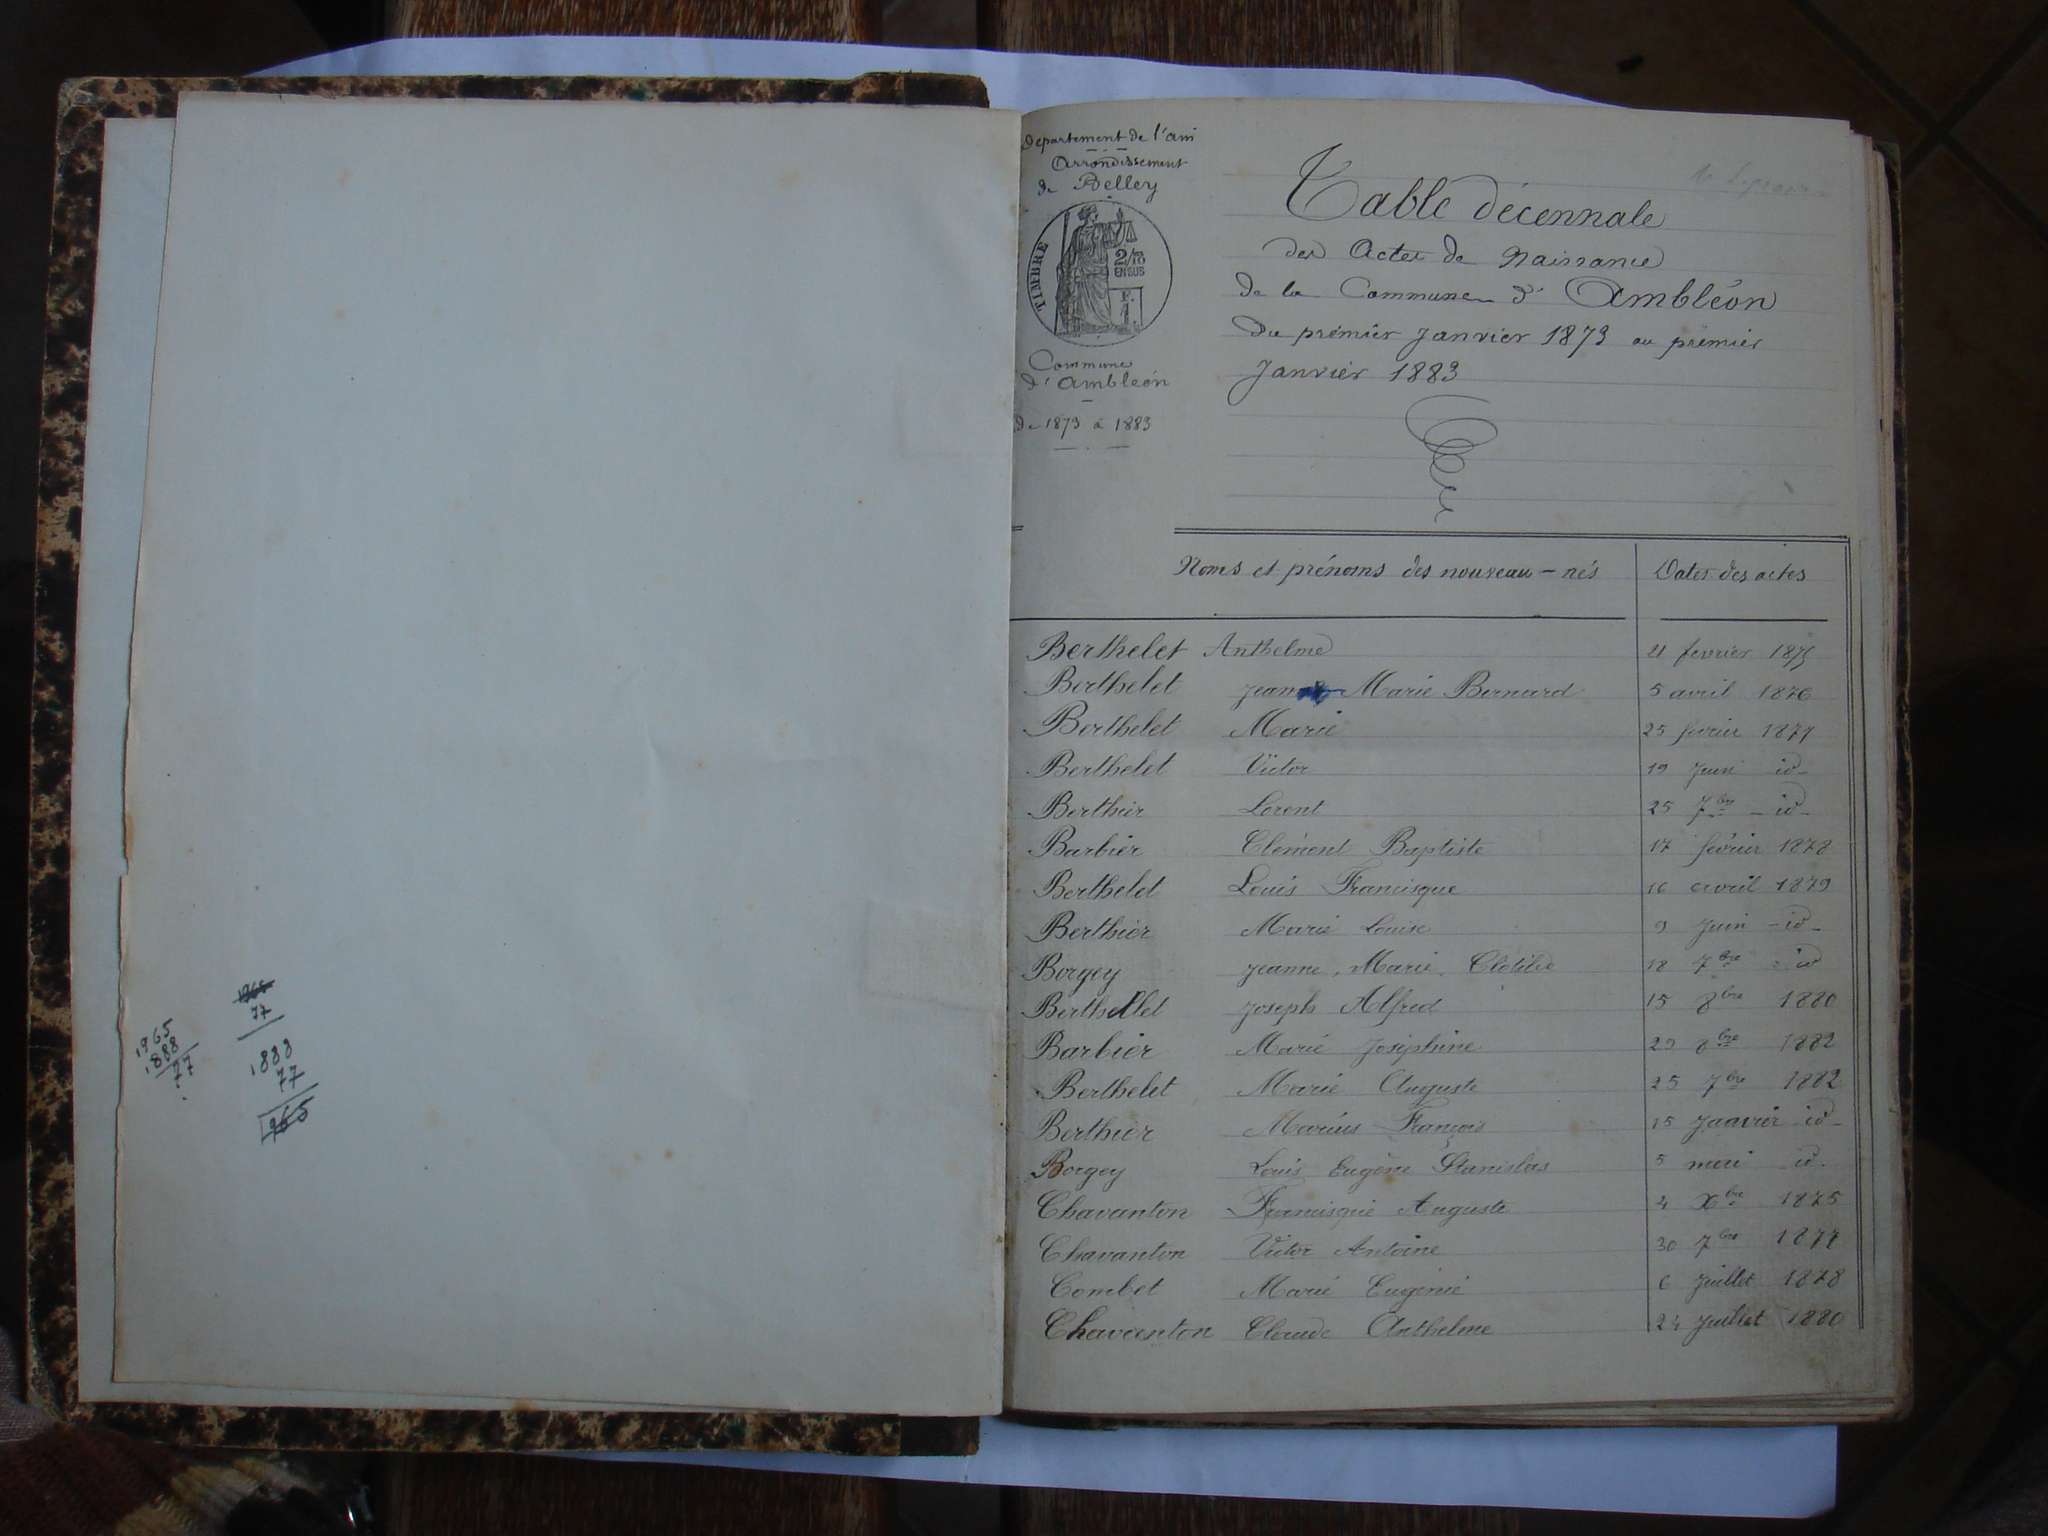 1965
77
1965
1888
77
1888
77
1965
Département de l'ain
Arrondissement
de Belley
TIMBRE
2/10
EN SUS
F.
1.
Commune
d'ambléon
de 1873 à 1883
Table décennale
des Actes de Naissance
de la Commune d'Ambléon
du prémier Janvier 1873 au prémier
Janvier 1883
Noms et prénoms des nouveau-nés Dates des actes
Berthelet Anthelme 21 fevrier 1875
Berthelet Jean Marie Bernard 5 avril 1876
Berthelet Marie 25 fevrier 1877
Berthelet Victor 19 juin id-
Berthier Lorent 25 7bre -id-
Barbier Clément Baptiste 17 février 1878
Berthelet Louis Francisque 16 avril 1879
Berthier Marie Louise 9 juin -id-
Borgey Jeanne Marie Clotilde 18 7bre id
Berthellet Joseph Alfred 15 8bre 1880
Barbier Marie Joséphine 29 8bre 1882
Berthelet Marie Auguste 25 7bre 1882
Berthier Marius François 15 Janvier id-
Borgey Louis Eugène Stanislas 5 mai id-
Chavanton Francisque Auguste 4 Xbre 1875
Chavanton Victor Antoine 30 7bre 1877
Combet Marie Eugénie 6 Juillet 1878
Chavanton Claude Anthelme 24 juillet 1880